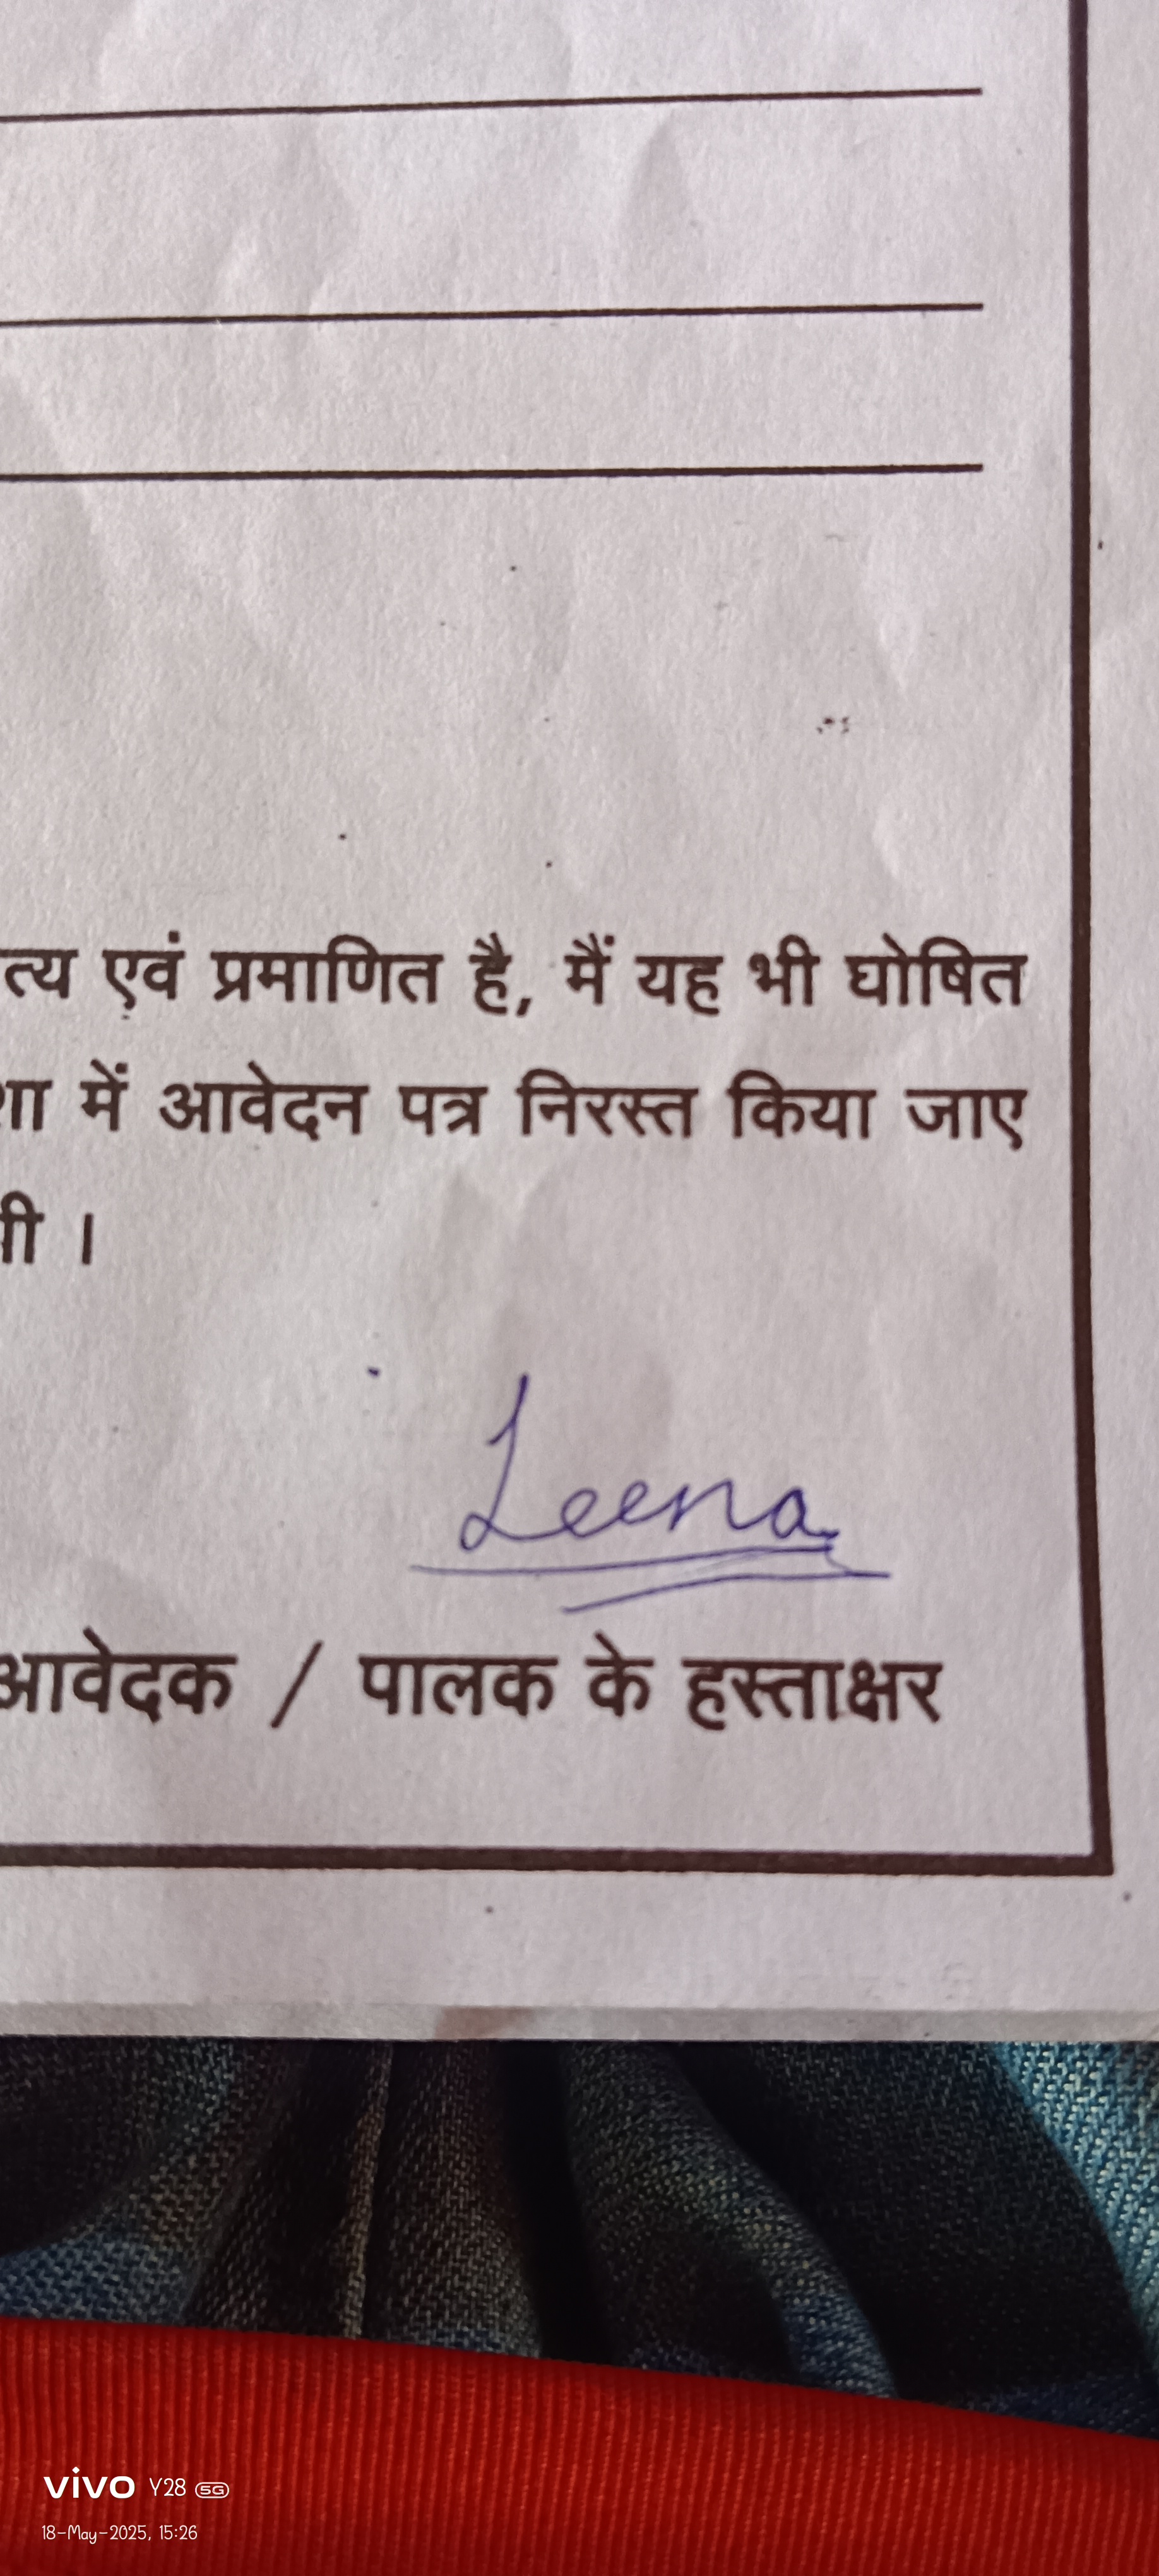 त्य एवं प्रमाणित है, मैं यह भी घोषित
में आवेदन पत्र निरस्त किया जाए
।
Leena
आवेदक / पालक के हस्ताक्षर
vivo Y28 5G
18-May-2025, 15:26